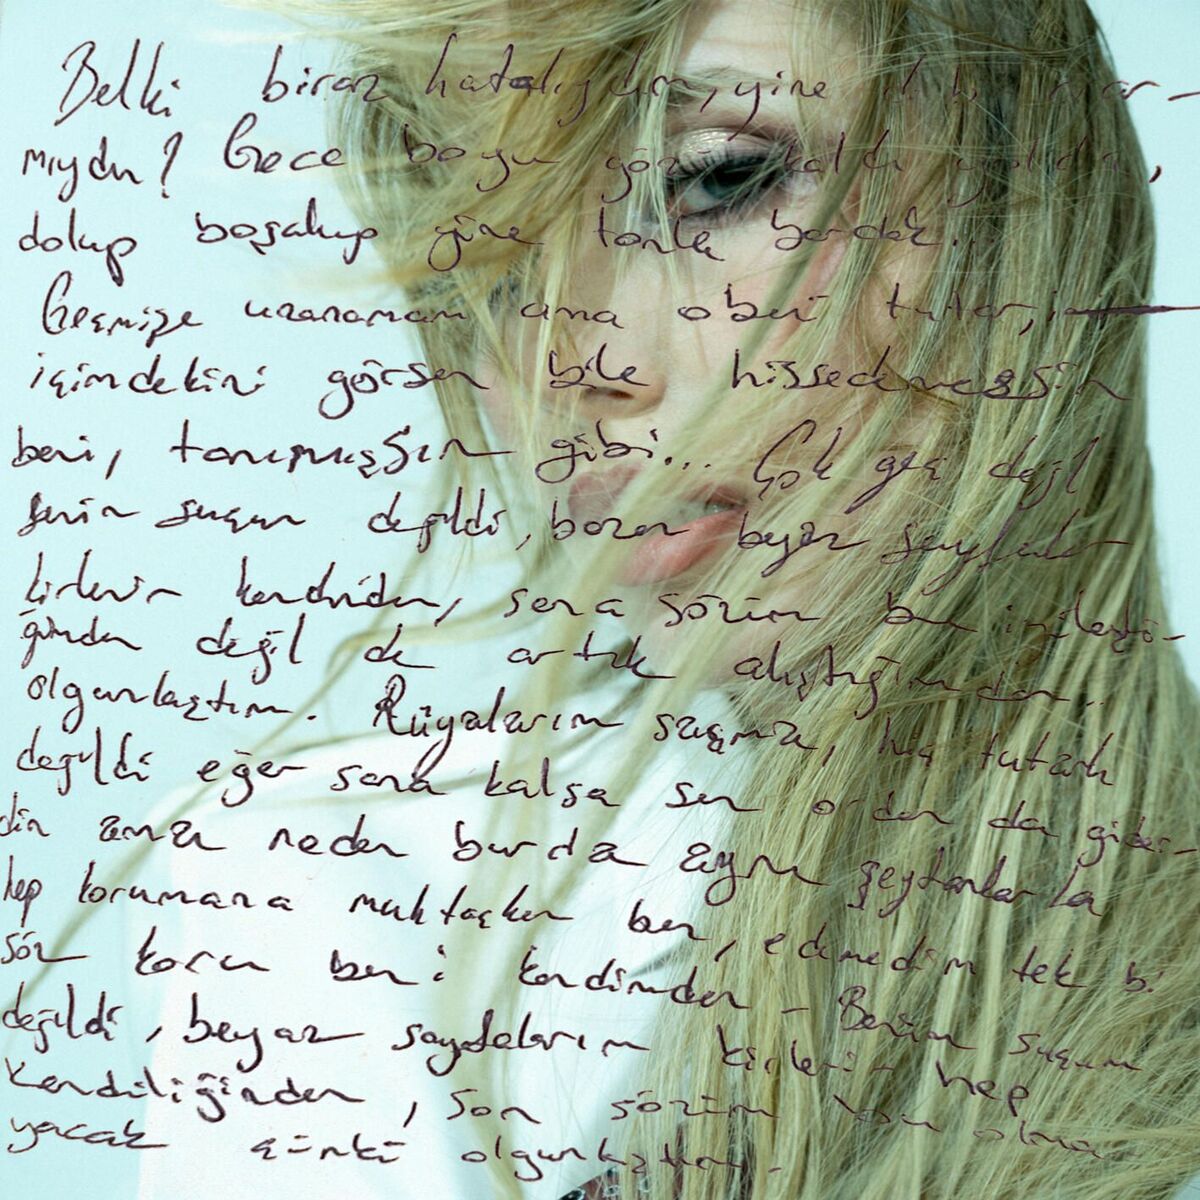 Belki biraz hatalıydım, yine
mıydın? Gece boyu gözüm kaldı yolda,
dolup boşalıyo yine tonla bardak...
Geçmişe uzanamam ama o beni tutar,
içimdekini görsen bile hissedemezsin
beni, tanımışsın gibi... Çok geç değil
senin suçun değildi, bazen beyaz sayfalar
kirlenir kendinden, sana sözüm bu
ğünden değil de artık alıştığımdan..
olgunlaştım. Rüyalarım saçma, hiç tutarlı
değildi eğer sana kalsa sen ordan da gider-
din ama neden burda aynı şeytanlarla
hep korumana muhtaçken ben, edemedim tek bi
söz koru beni kendimden - Benim suçum
değildi, beyaz sayfaların kirleri - hep
kendiliğinden, son sözüm bu olma-
yacak çünkü olgunlaştım.